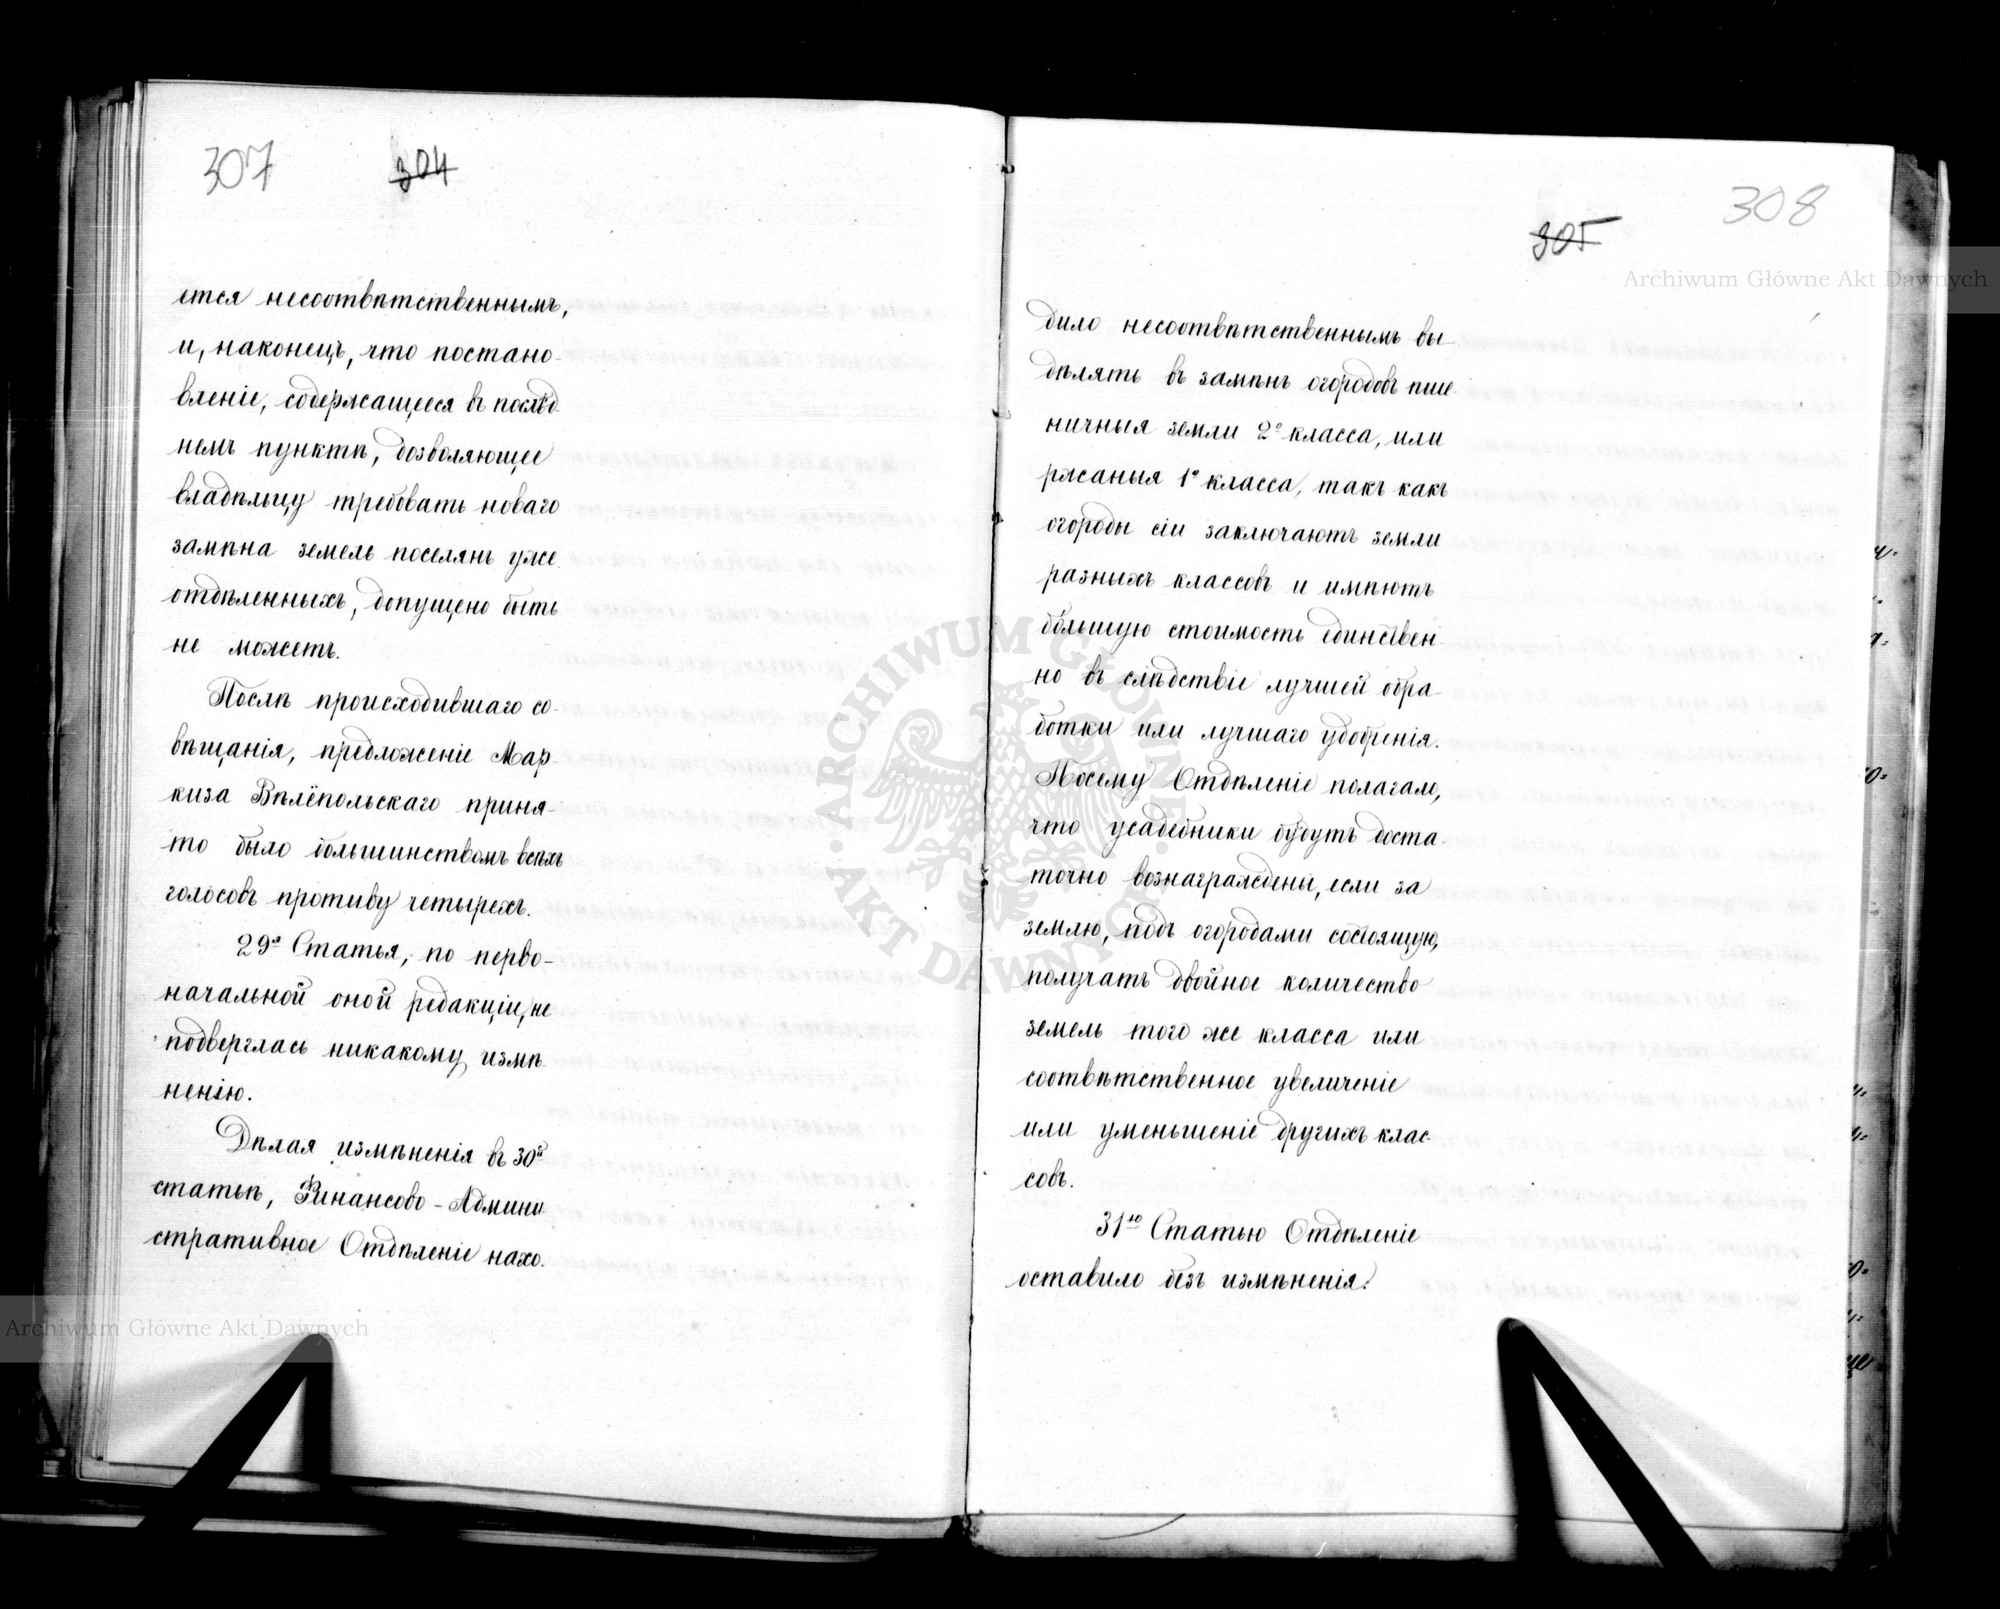 307 304
ется несоотвѣтственнымъ,
и, наконецъ, что постано-
вленіе, содержащееся въ послѣд-
немъ пунктѣ, дозволяющее
владѣльцу требовать новаго
замѣна земель поселянъ уже
отдѣленныхъ, допущено быть
не можетъ.
Послѣ происходившаго со-
вѣщанія, предложеніе Мар-
киза Вѣлёпольскаго приня-
то было большинствомъ всѣхъ
голосовъ противу четырехъ.
29я Статья, по перво-
начальной оной редакціи, не
подверглась никакому измѣ-
ненію.
Дѣлая измѣненія въ 30й
статьѣ, Финансово-Админи
стративное Отдѣленіе нахо-
308
305
дило несоотвѣтственнымъ вы-
дѣлять въ замѣнъ огородовъ пше-
ничныя земли 2о класса, или
ржаныя 1о класса, такъ какъ
огороды сіи заключаютъ земли
разныхъ классовъ и имѣютъ
большую стоимость единствен-
но въ слѣдствіе лучшей обра-
ботки или лучшаго удобренія.
Посему Отдѣленіе полагало,
что усадебники будутъ доста
точно вознаграждены, если за
землю, подъ огородами состоящую,
получатъ двойное количество
земель того же класса или
соотвѣтственное увеличеніе
или уменьшеніе другихъ клас-
совъ.
31ю Статью Отдѣленіе
оставило безъ измѣненія.
Archiwum Główne Akt Dawnych
ARCHIWUM GŁÓWNE AKT DAWNYCH
Archiwum Główne Akt Dawnych